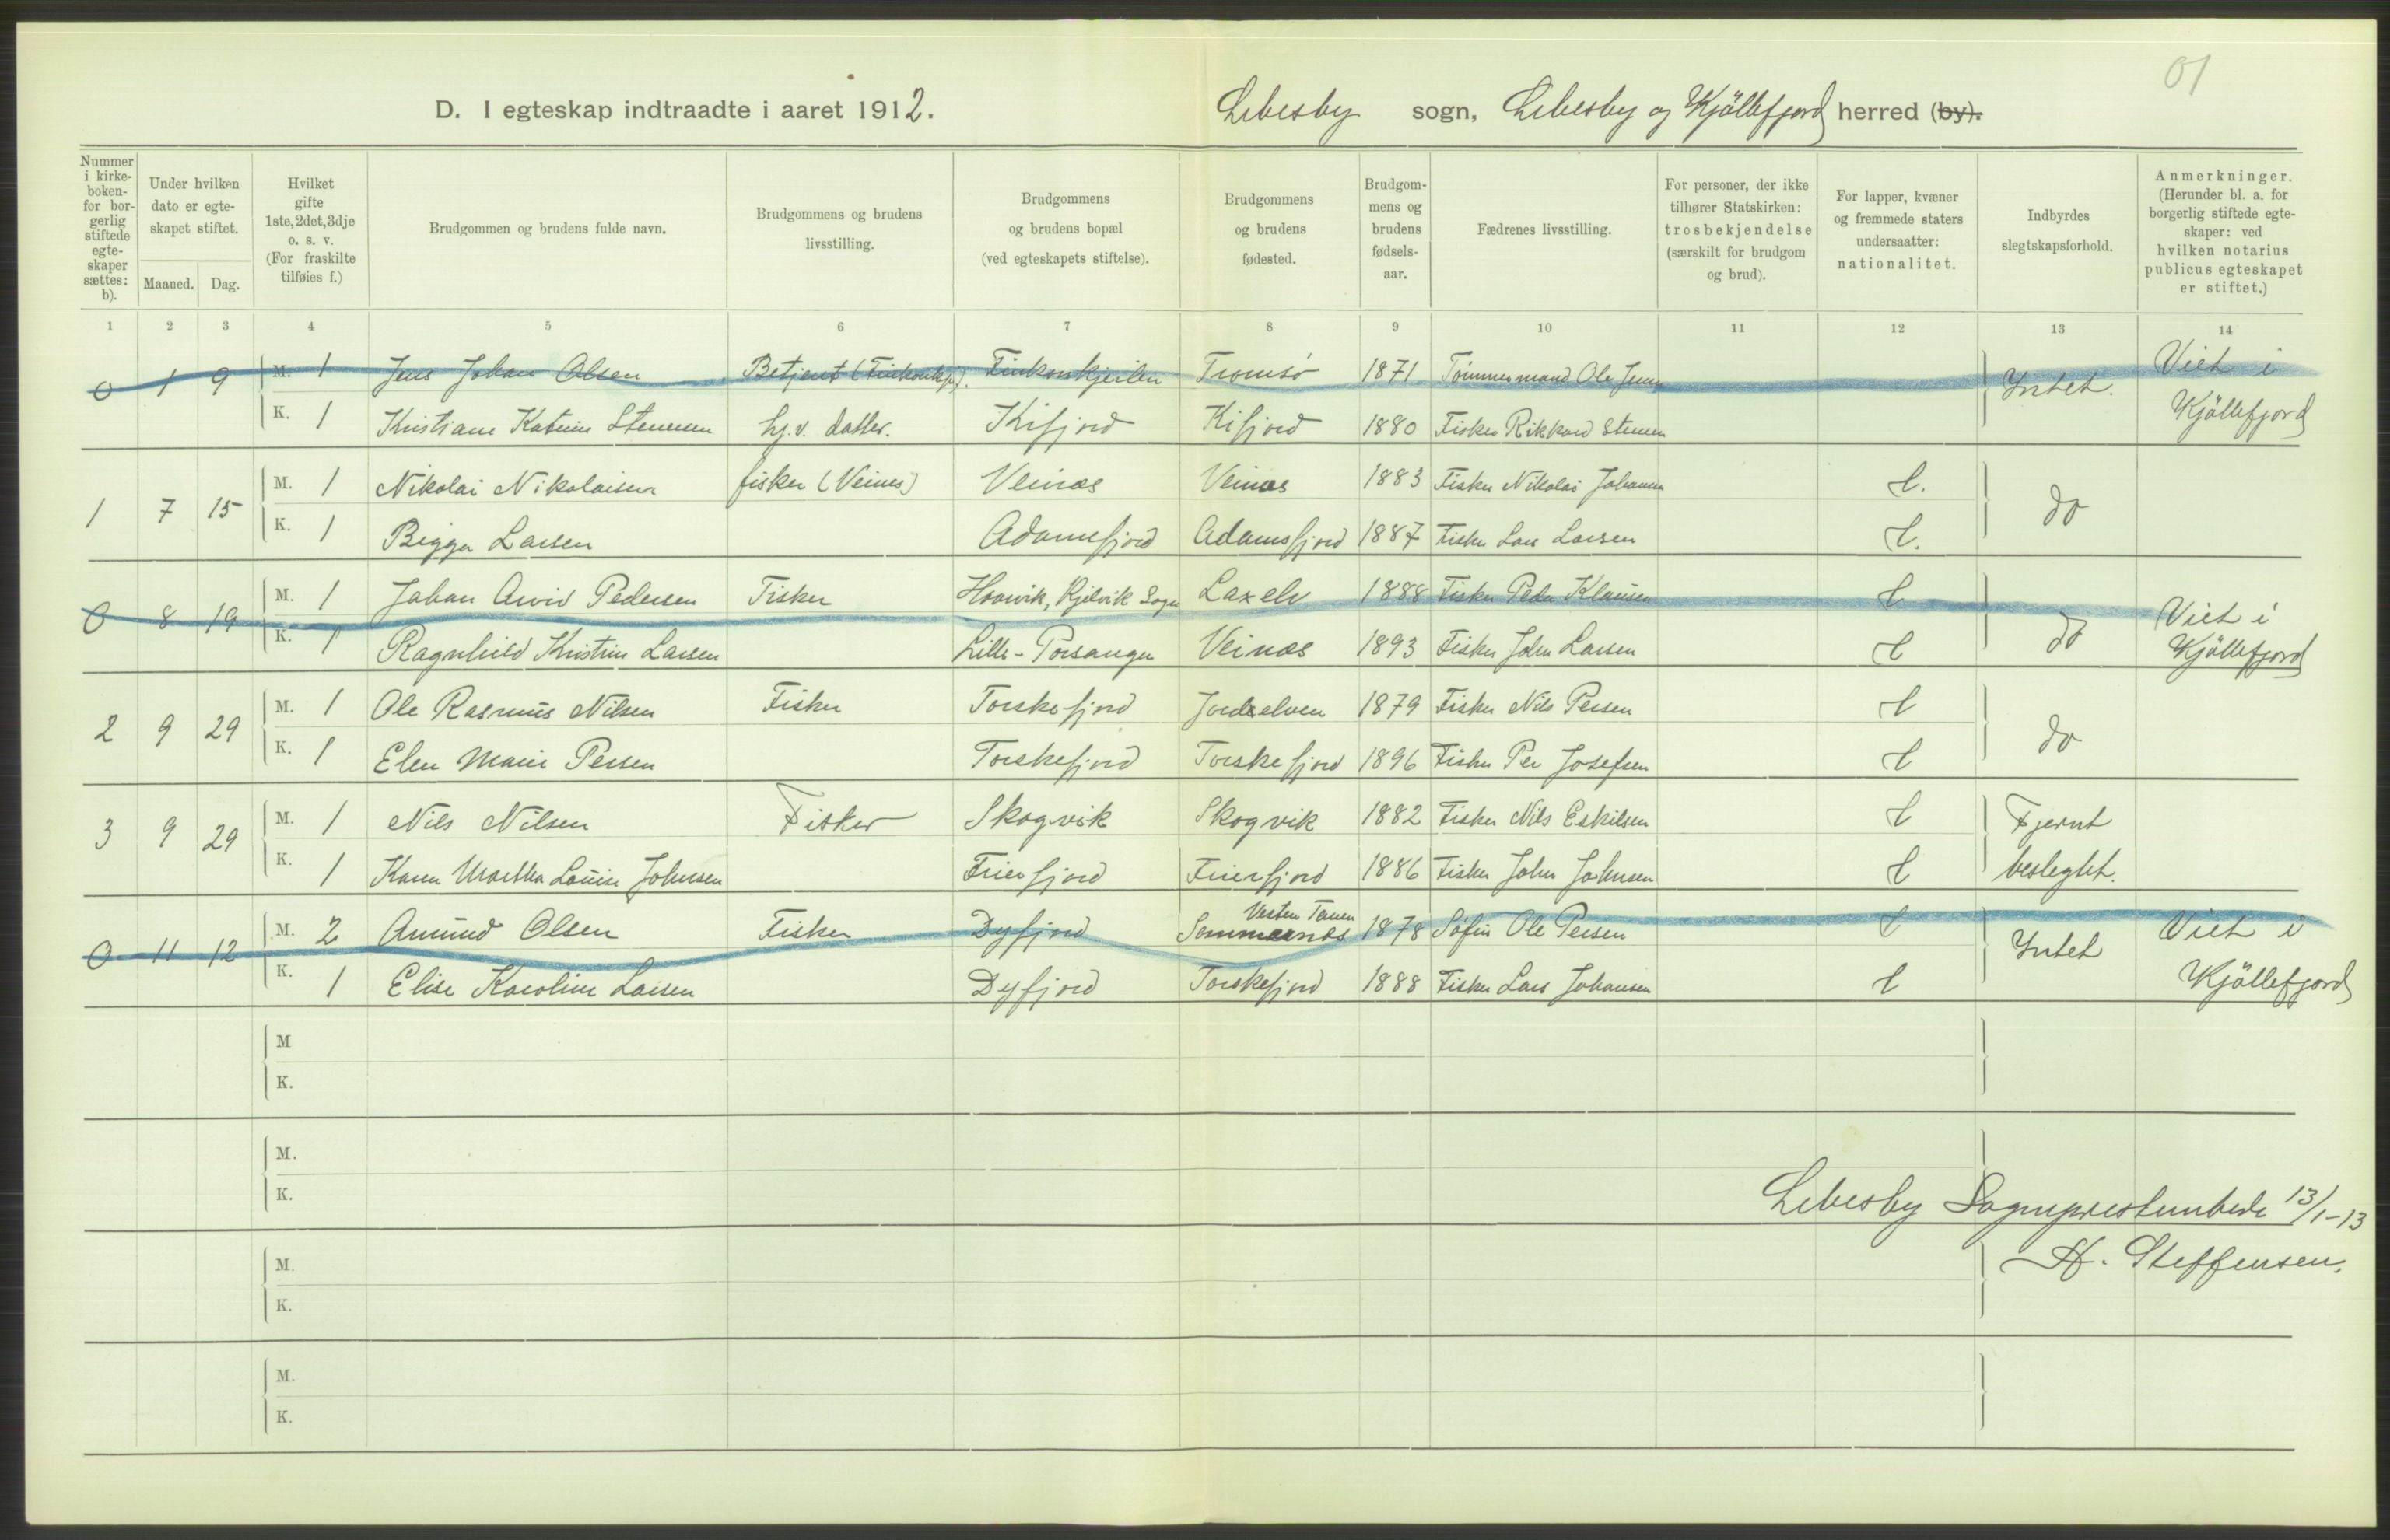 01
D. I egteskap indtraadte i aaret 1912. Lebesby sogn, Lebesby og Kjöllefjord herred (by).
Nummer i kirke-boken- for bor-gerlig stiftede egte-skaper sættes: b).
Under hvilken dato er egte-skapet stiftet.
Maaned. Dag.
Hvilket gifte 1ste, 2det, 3dje o. s. v. (For fraskilte tilføies f.)
Brudgommen og brudens fulde navn.
Brudgommens og brudens livsstilling.
Brudgommens og brudens bopæl (ved egteskapets stiftelse).
Brudgommens og brudens fødested.
Brudgom-mens og brudens fødsels-aar.
Fædrenes livsstilling.
For personer, der ikke tilhører Statskirken: trosbekjendelse (særskilt for brudgom og brud).
For lapper, kvæner og fremmede staters undersaatter: nationalitet.
Indbyrdes slegtskapsforhold.
Anmerkninger. (Herunder bl. a. for borgerlig stiftede egte-skaper: ved hvilken notarius publicus egteskapet er stiftet.)
1 2 3 4 5 6 7 8 9 10 11 12 13 14
0 1 9 M. 1 Jens Johan Olsen Betjent Finkonkjeilen Tromsö 1871 Tömmermand Ole Jens Intet. Viet i
K. 1 Kristiane Katrine Stenersen hj.v. datter. Kifjord Kifjord 1880 Fisker Rikkard Stenersen Kjöllefjord
1 7 15 M. 1 Nikolai Nikolaisen fisker (Veines) Veinæs Veinæs 1883 Fisker Nikolai Johannes L. do
K. 1 Bigga Larsen Adamsfjord Adamsfjord 1887 Fisker Lars Larsen L.
0 8 19 M. 1 Johan Arvid Pedersen Fisker Honvik, Kjelvik Sogn Laxelv 1888 Fisker Peder Klausen L do Viet i
K. 1 Ragnhild Kristine Larsen Lille-Porsanger Veinæs 1893 Fisker John Larsen L Kjöllefjord
2 9 29 M. 1 Ole Rasmus Nilsen Fisker Torskefjord 1879 Fisker Nils Persen L do
K. 1 Elen Marie Persen Torskefjord Torskefjord 1896 Fisker Per Josefsen L
3 9 29 M. 1 Nils Nilsen Fisker Skogvik Skogvik 1882 Fisker Nils Eskilsen L Fjernt
K. 1 Karen Martha Louise Johnsen Frierfjord Frierfjord 1886 Fisker John Johnsen L beslegtet.
0 11 12 M. 2 Amund Olsen Fisker Dyfjord Vestre Tanen 1878 Ole Persen L Intet Viet i
K. 1 Elise Karoline Larsen Dyfjord Torskefjord 1888 Fisker Lars Johansen L Kjöllefjord
M
K.
M.
K.
Lebesby Sogneprestembede 13/1-13
M.
H. Steffensen.
K.
M.
K.